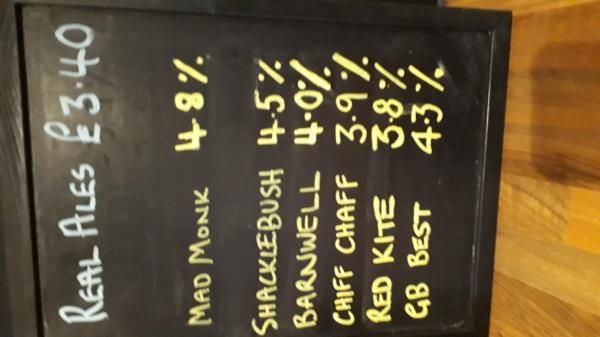 REAL ALES £3.40
MAD MONK 4.8%
SHACKLEBUSH 4.5%
BARNWELL 4.0%
CHIFF CHAFF 3.9%
RED KITE 3.8%
GB BEST 4.3%